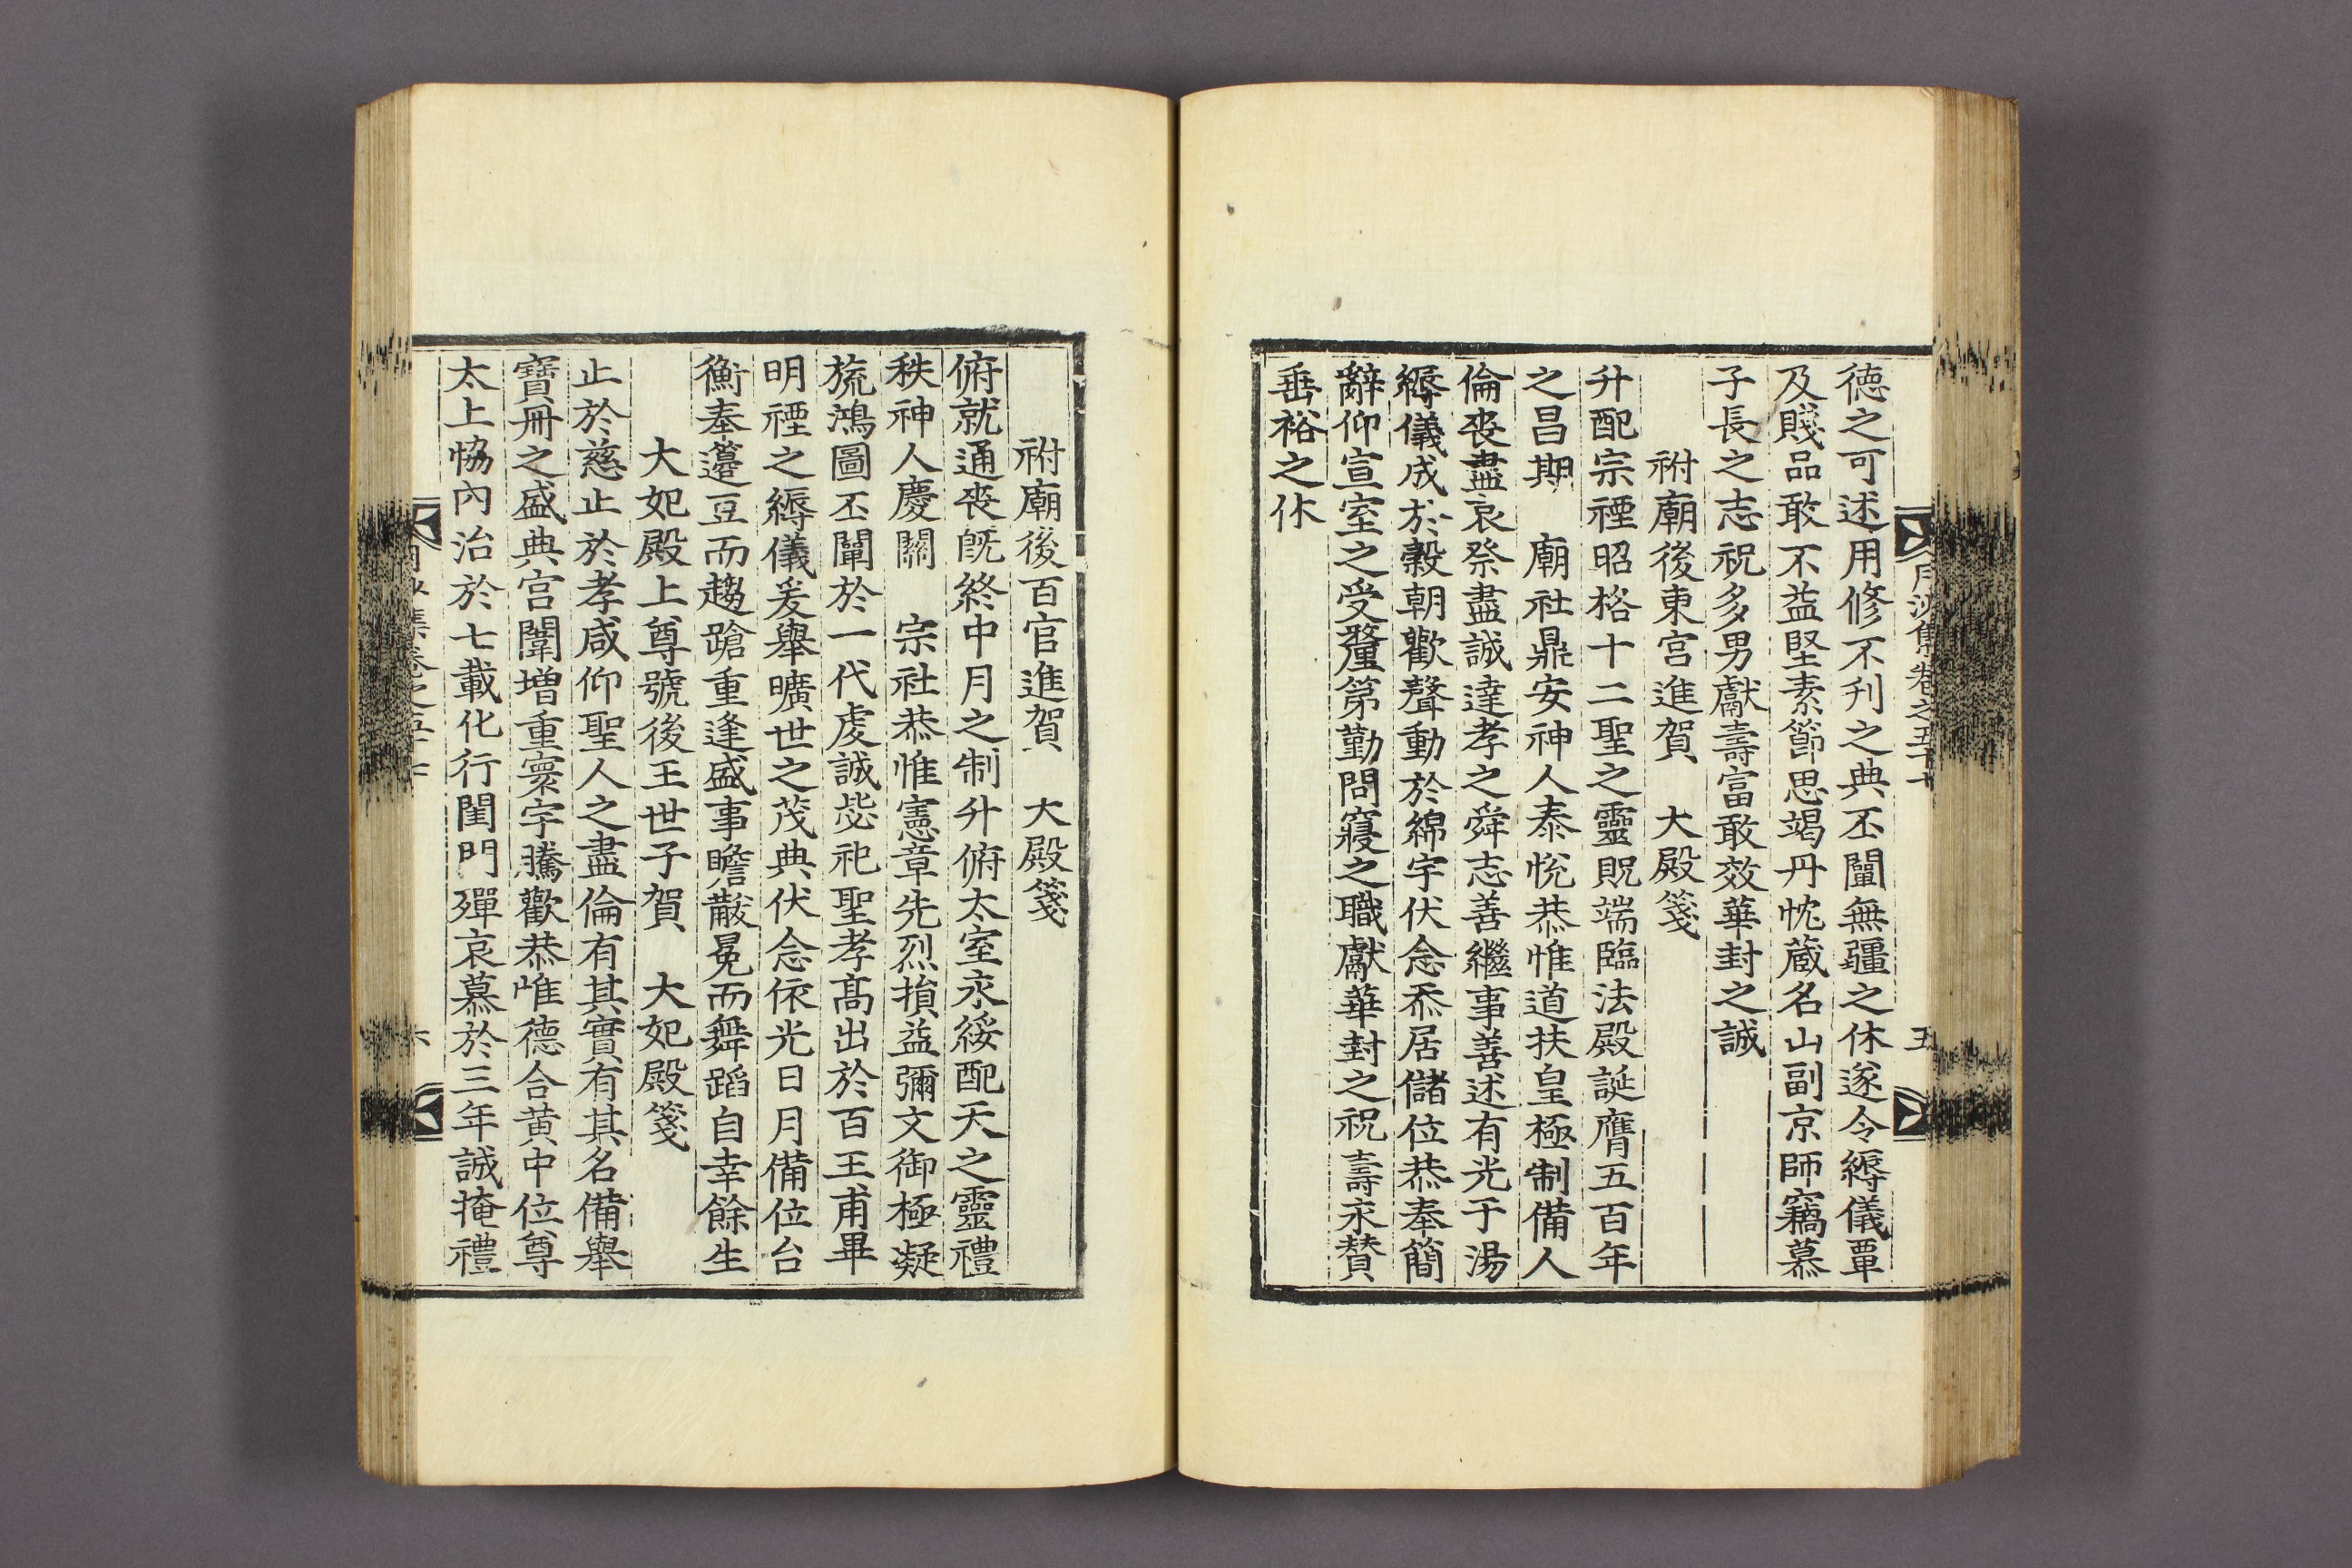 月沙集卷之五十七
五
德之可述用修不刋之典丕闡無疆之休遂令縟儀覃
及賤品敢不益堅素節思竭丹忱蔵名山副京師竊慕
子長之志祝多男獻壽富敢效華封之誠
祔廟後東宮進賀　大殿箋
升配宗禋昭格十二聖之靈貺端臨法殿誕膺五百年
之昌期　廟社鼎安神人泰悅恭惟道扶皇極制備人
倫喪盡哀祭盡誠達孝之舜志善繼事善述有光于湯
縟儀成於穀朝歡聲動於綿宇伏念忝居儲位恭奉簡
辭仰宣室之受釐第勤問寢之職獻華封之祝壽永賛
垂裕之休
祔廟後百官進賀　大殿箋
俯就通喪旣終中月之制升祔太室永綏配天之靈禮
秩神人慶關　宗社恭惟憲章先烈損益彌文御極凝
旒鴻圖丕闡於一代虔誠毖祀聖孝髙出於百王甫畢
明禋之縟儀爰舉曠世之茂典伏念依光日月備位台
衡奉籩豆而趨蹌重逢盛事瞻黻冕而舞蹈自幸餘生
大妃殿上尊號後王世子賀　大妃殿箋
止於慈止於孝咸仰聖人之盡倫有其實有其名備舉
寶冊之盛典宮闈増重寰宇騰歡恭唯德合黄中位尊
太上恊內治於七載化行閨門殫哀慕於三年誠掩禮
月沙集卷之五十七
六